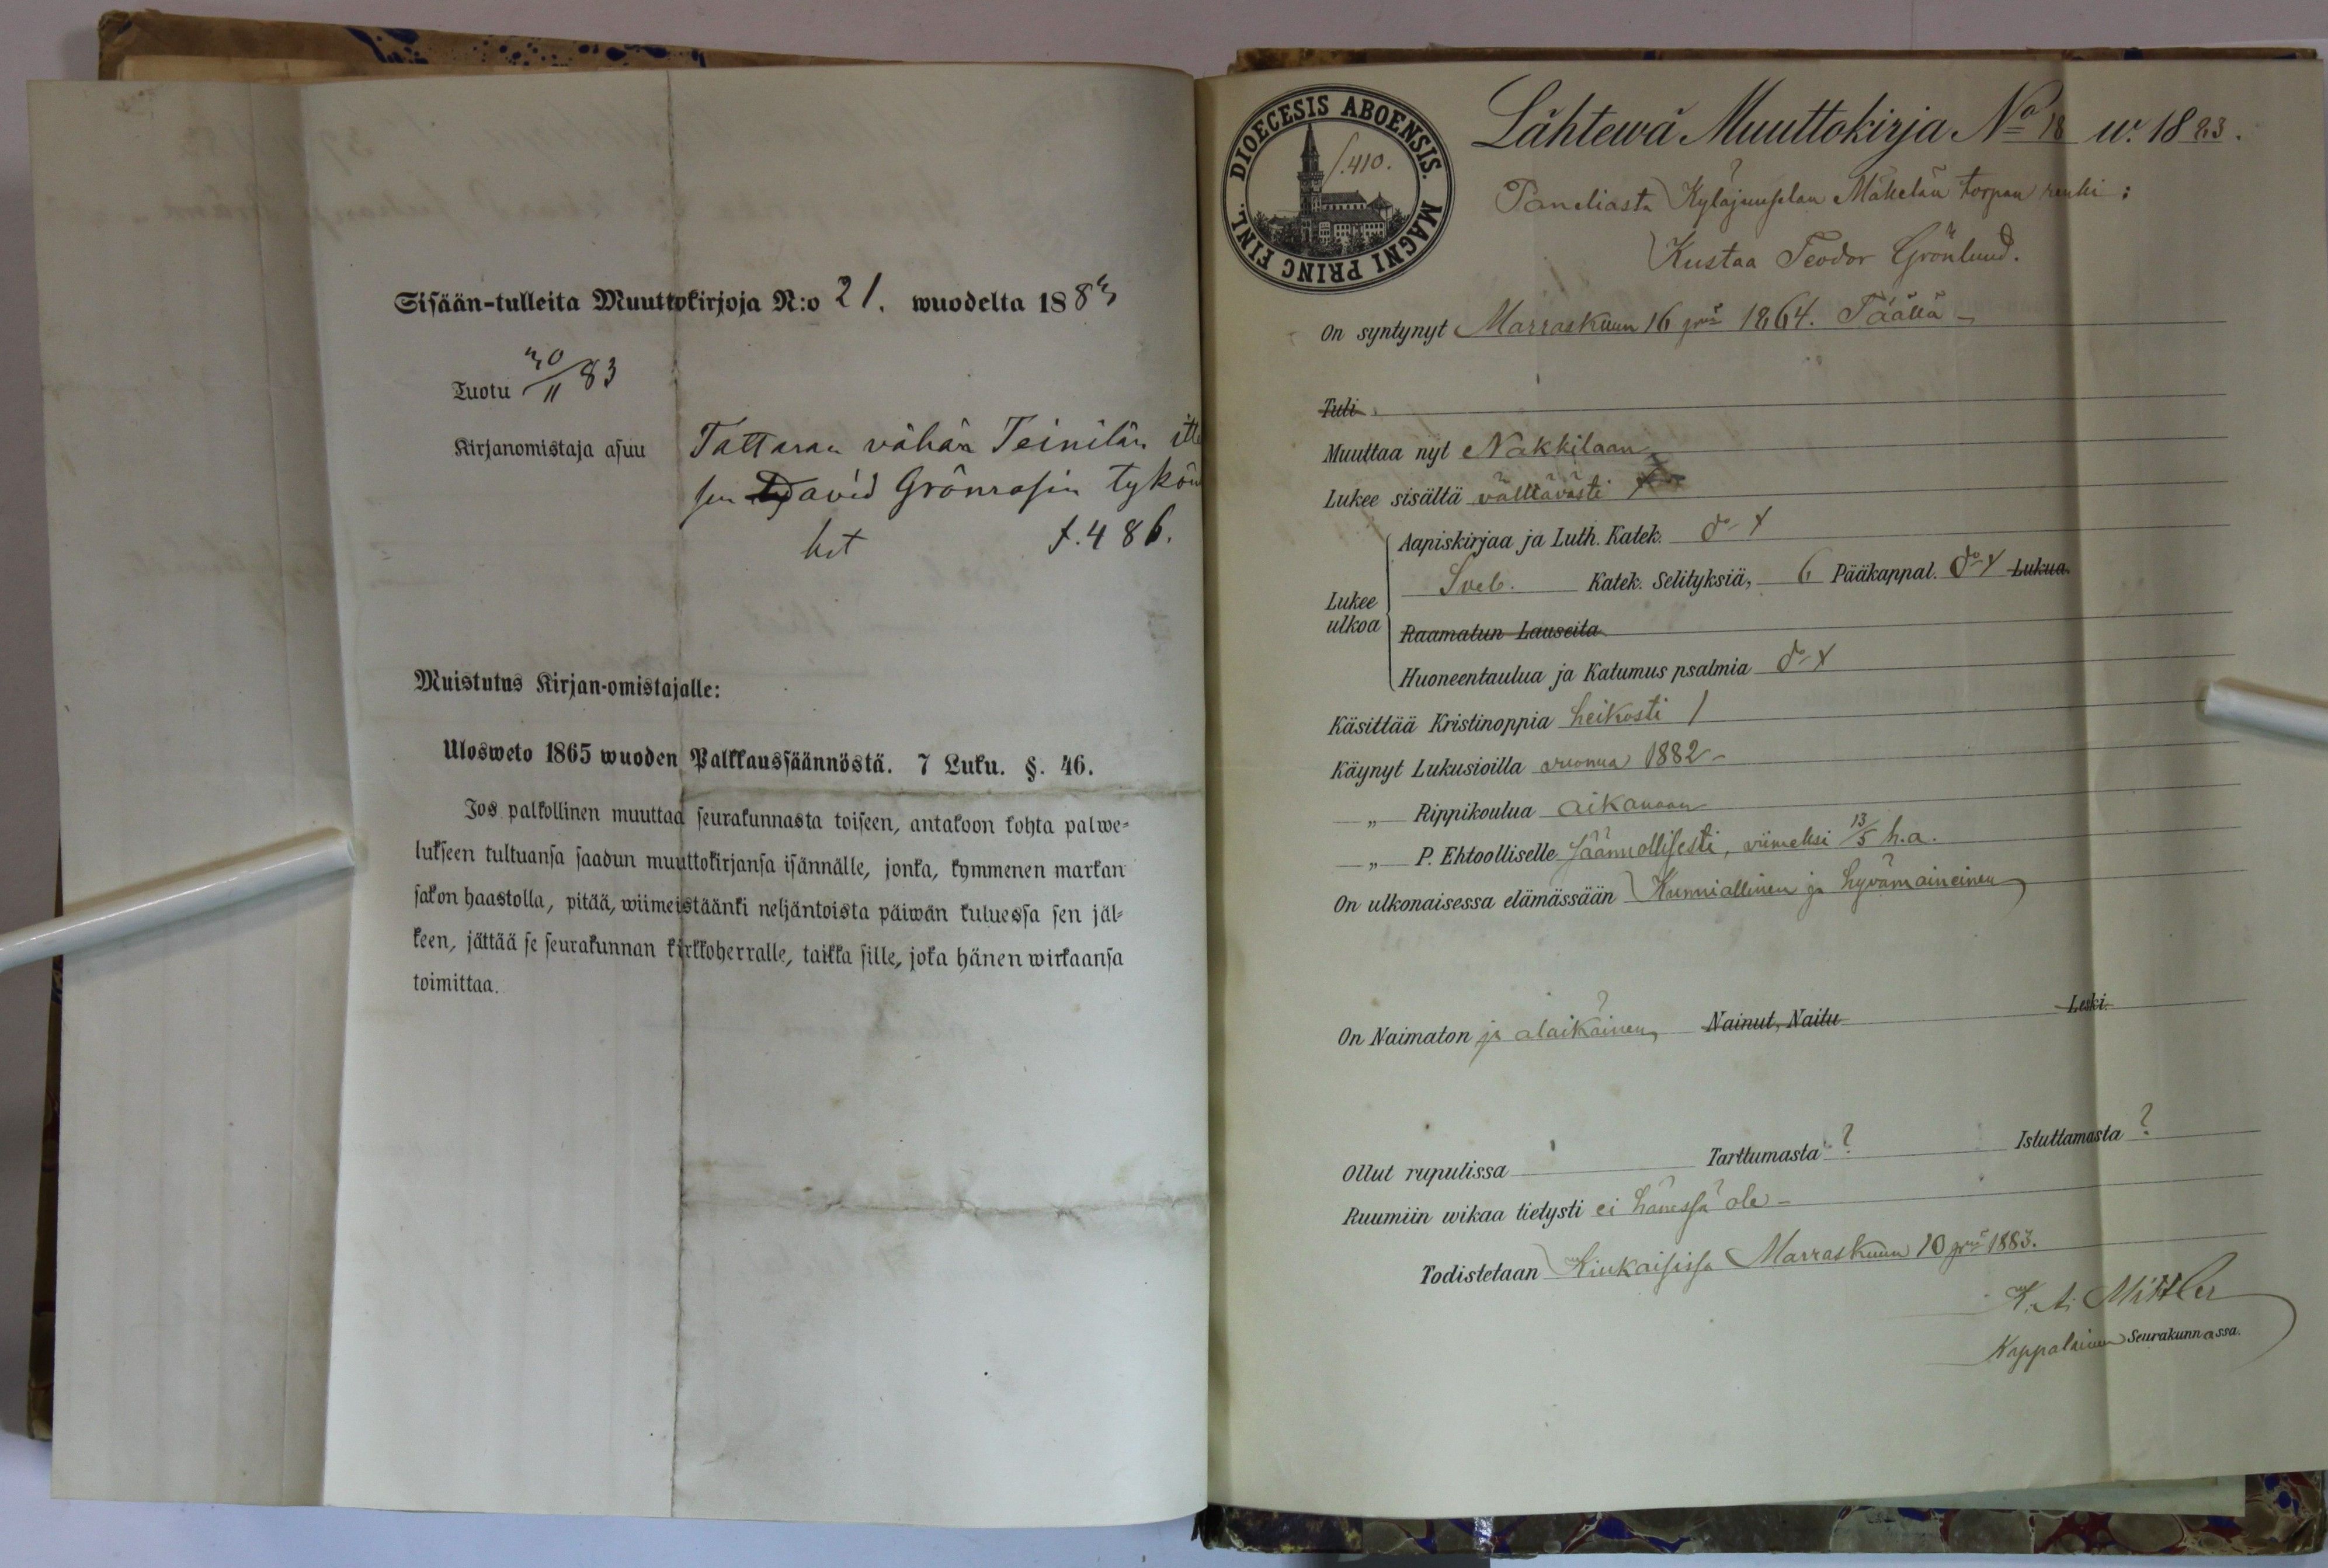 Sisään-tulleita Muuttokirjoja N:o 21. wuodelta 1883
Tuotu 30/11 83
Kirjanomistaja asuu Tattaran vähän Teinilän
sen David Grönrosin tykön
f. 486.
Muistutus Kirjan-omistajalle:
Ulosweto 1865 wuoden Palkkaussäännöstä. 7 Luku. §. 46.
Jos palkollinen muuttaa seurakunnasta toiseen, antakoon kohta palwe=
lukseen tultuansa saadun muuttokirjansa isännälle, jonka, kymmenen markan
sakon haastolla, pitää, wiimeistäänki neljäntoista päiwän kuluessa sen jäl=
keen, jättää se seurakunnan kirkkoherralle, taikka sille, joka hänen wirkaansa
toimittaa.
DIOECESIS ABOENSIS. MAGNI PRINC FINL.
f.410.
Lähtewä Muuttokirja No 18 w. 1883.
Paneliasta Kyläjuuselan Mäkelän torpan renki:
Kustaa Teodor Grönlund.
On syntynyt Marraskuun 16 pnä 1864. Täällä –
Tuli
Muuttaa nyt Nakkilaan
Lukee sisältä välttävästi
Aapiskirjaa ja Luth. Katek. do
Lukee ulkoa
Sveb. Katek. Selityksiä, 6 Pääkappal. do Lukua.
Raamatun Lauseita
Huoneentaulua ja Katumus psalmia do
Käsittää Kristinoppia heikosti /
Käynyt Lukusioilla vuonna 1882 –
— „ — Rippikoulua aikanaan
— „ — P. Ehtoolliselle säännollisesti, viimeksi 13/5 h.a.
On ulkonaisessa elämässään Kunniallinen ja hyvämaineinen
On Naimaton ja alaikäinen, Nainut, Naitu Leski.
Ollut rupulissa Tarttumasta ? Istuttamasta ?
Ruumiin wikaa tietysti ei hänessä ole –
Todistetaan Kiukaisissa Marraskuun 10 pnä 1883.
K. A. Mittler
Kappalainen Seurakunnassa.